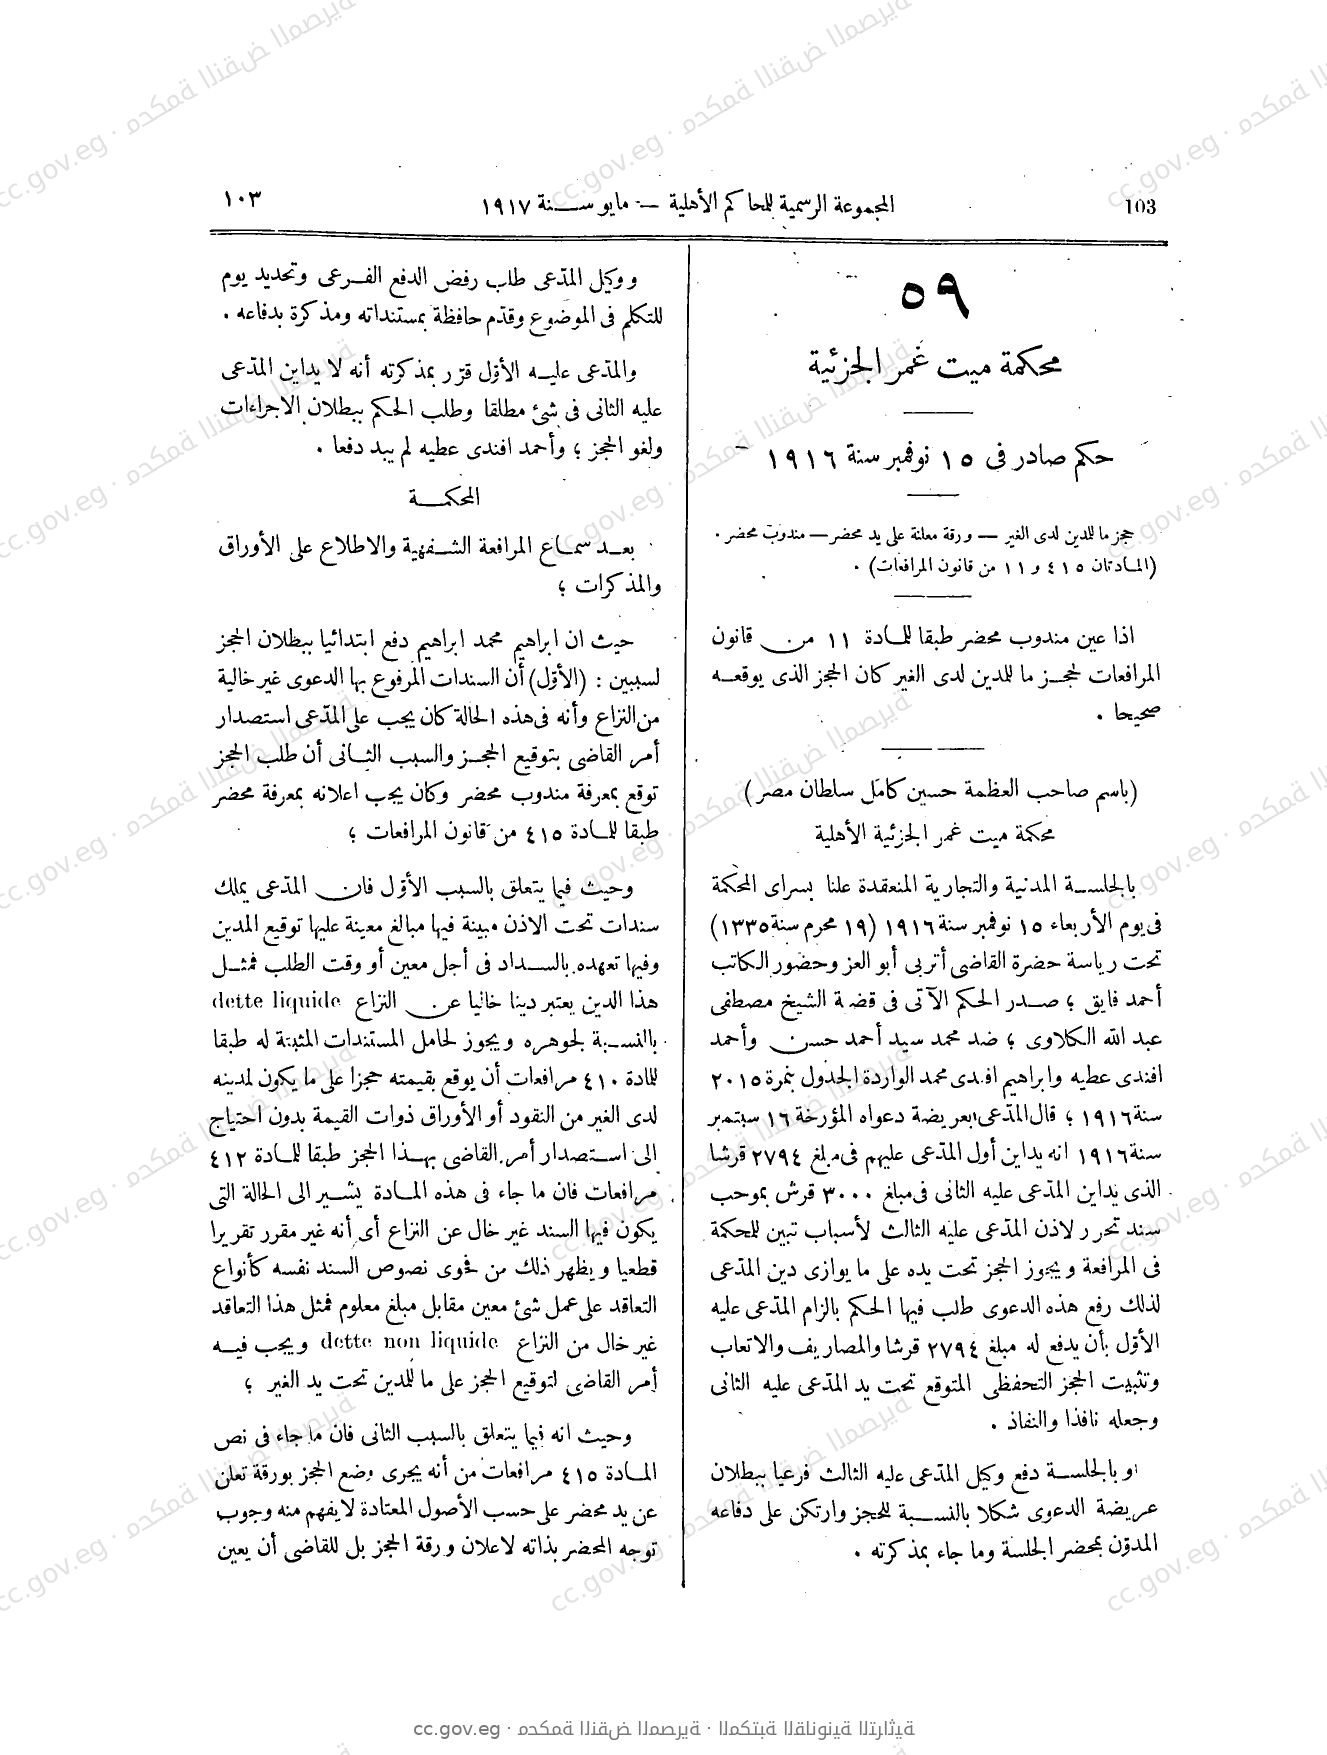 103
المجموعة الرسمية للمحاكم الأهلية — مايو سنة ١٩١٧
١٠٣
٥٩
محكمة ميت غمر الجزئية
حكم صادر فى ١٥ نوفمبر سنة ١٩١٦
حجز ما للدين لدى الغير — ورقة معلنة على يد محضر — مندوب محضر .
(المادتان ٤١٥ و ١١ من قانون المرافعات) .
اذا عين مندوب محضر طبقا للمادة ١١ من قانون
المرافعات لحجز ما للدين لدى الغير كان الحجز الذى يوقعه
صحيحا .
(باسم صاحب العظمة حسين كامل سلطان مصر)
محكمة ميت غمر الجزئية الأهلية
بالجلسة المدنية والتجارية المنعقدة علنا بسراى المحكمة
فى يوم الأربعاء ١٥ نوفمبر سنة ١٩١٦ (١٩ محرم سنة ١٣٣٥)
تحت رياسة حضرة القاضى أتربى أبو العز وحضور الكاتب
أحمد فايق ؛ صدر الحكم الآتى فى قضية الشيخ مصطفى
عبد الله الكلاوى ؛ ضد محمد سيد أحمد حسن وأحمد
افندى عطيه وابراهيم افندى محمد الواردة الجدول بنمرة ٢٠١٥
سنة ١٩١٦ ؛ قال المدّعى بعريضة دعواه المؤرخة ١٦ سبتمبر
سنة ١٩١٦ انه يداين أول المدّعى عليهم فى مبلغ ٢٧٩٤ قرشا
الذى يداين المدّعى عليه الثانى فى مبلغ ٣٠٠٠ قرش بموجب
سند تحرر لاذن المدّعى عليه الثالث لأسباب تبين للمحكمة
فى المرافعة ويجوز الحجز تحت يده على ما يوازى دين المدّعى
لذلك رفع هذه الدعوى طلب فيها الحكم بالزام المدّعى عليه
الأوّل بأن يدفع له مبلغ ٢٧٩٤ قرشا والمصاريف والاتعاب
وتثبيت الحجز التحفظى المتوقع تحت يد المدّعى عليه الثانى
وجعله نافذا والنفاذ .
وبالجلسة دفع وكيل المدّعى عليه الثالث فرعيا ببطلان
عريضة الدعوى شكلا بالنسبة للحجز وارتكن على دفاعه
المدوّن بمحضر الجلسة وما جاء بمذكرته .
ووكيل المدّعى طلب رفض الدفع الفرعى وتحديد يوم
للتكلم فى الموضوع وقدّم حافظة بمستنداته ومذكرة بدفاعه .
والمدّعى عليه الأوّل قرّر بمذكرته أنه لا يداين المدّعى
عليه الثانى فى شئ مطلقا وطلب الحكم ببطلان الاجراءات
ولغو الحجز ؛ وأحمد افندى عطيه لم يبد دفعا .
المحكمة
بعد سماع المرافعة الشفهية والاطلاع على الأوراق
والمذكرات ؛
حيث ان ابراهيم محمد ابراهيم دفع ابتدائيا ببطلان الحجز
لسببين : (الأوّل) أن السندات المرفوع بها الدعوى غير خالية
من النزاع وأنه فى هذه الحالة كان يجب على المدّعى استصدار
أمر القاضى بتوقيع الحجز والسبب الثانى أن طلب الحجز
توقع بمعرفة مندوب محضر وكان يجب اعلانه بمعرفة محضر
طبقا للمادة ٤١٥ من قانون المرافعات ؛
وحيث فيما يتعلق بالسبب الأوّل فان المدّعى يملك
سندات تحت الاذن مبينة فيها مبالغ معينة عليها توقيع المدين
وفيها تعهده بالسداد فى أجل معين أو وقت الطلب فمثل
هذا الدين يعتبر دينا خاليا عن النزاع dette liquide
بالنسبة لجوهره ويجوز لحامل المستندات المثبتة له طبقا
للمادة ٤١٠ مرافعات أن يوقع بقيمته حجزا على ما يكون لمدينه
لدى الغير من النقود أو الأوراق ذوات القيمة بدون احتياج
الى استصدار أمر القاضى بهذا الحجز طبقا للمادة ٤١٢
مرافعات فان ما جاء فى هذه المادة يشير الى الحالة التى
يكون فيها السند غير خال عن النزاع أى أنه غير مقرر تقريرا
قطعيا ويظهر ذلك من فحوى نصوص السند نفسه كأنواع
التعاقد على عمل شئ معين مقابل مبلغ معلوم فمثل هذا التعاقد
غير خال من النزاع dette non liquide ويجب فيه
أمر القاضى لتوقيع الحجز على ما للمدين تحت يد الغير ؛
وحيث انه فيما يتعلق بالسبب الثانى فان ما جاء فى نص
المادة ٤١٥ مرافعات من أنه يجرى وضع الحجز بورقة تعلن
عن يد محضر على حسب الأصول المعتادة لا يفهم منه وجوب
توجه المحضر بذاته لاعلان ورقة الحجز بل للقاضى أن يعين
cc.gov.eg · محكمة النقض المصرية · المكتبة القانونية التراثية